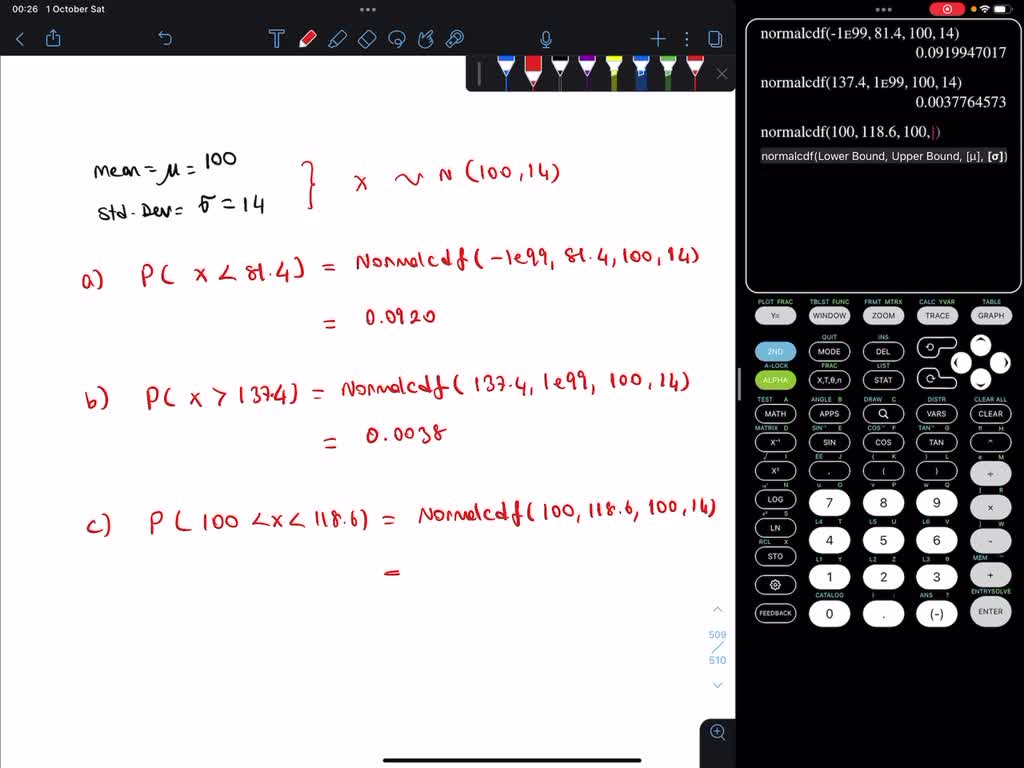 00:26 1 October Sat
mean = μ = 100
std. Dev = σ = 14
} X ~ N (100, 14)
a) P( x < 81.4) = Normalcdf(-1e99, 81.4, 100, 14)
= 0.0920
b) P( x > 137.4) = Normalcdf( 137.4, 1e99, 100, 14)
= 0.0038
c) P( 100 < x < 118.6) = Normalcdf( 100, 118.6, 100, 14)
=
509
510
normalcdf(-1E99, 81.4, 100, 14)
0.0919947017
normalcdf(137.4, 1E99, 100, 14)
0.0037764573
normalcdf(100, 118.6, 100, )
normalcdf(Lower Bound, Upper Bound, [μ], [σ])
PLOT FRAC TBLST FUNC FRMT MTRX CALC YVAR TABLE
Y= WINDOW ZOOM TRACE GRAPH
QUIT INS
2ND MODE DEL
A-LOCK FRAC LIST
ALPHA X,T,θ,n STAT
TEST A ANGLE B DRAW C DISTR CLEAR ALL
MATH APPS VARS CLEAR
MATRIX D SIN⁻¹ E COS⁻¹ F TAN⁻¹ G π H
X⁻¹ SIN COS TAN ^
√ I EE J { K } L e M
X² , ( ) ÷
N u O v P w Q [ R
LOG 7 8 9 ×
S L4 T L5 U L6 V ] W
LN 4 5 6 -
RCL X L1 Y L2 Z L3 θ MEM
STO 1 2 3 +
CATALOG ANS ? ENTRYSOLVE
FEEDBACK 0 . (-) ENTER